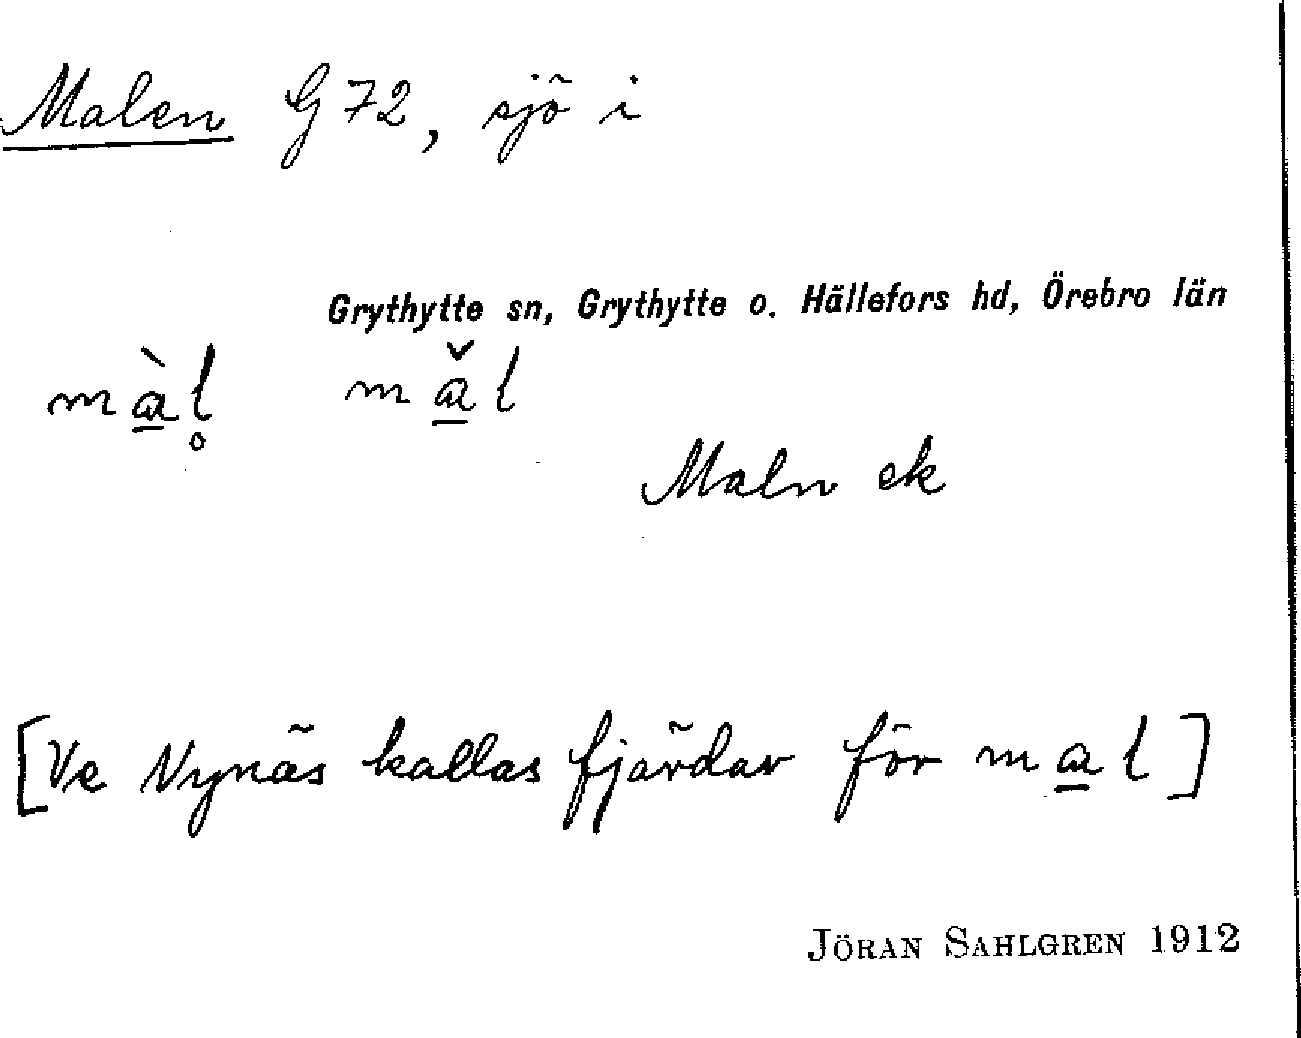 Malen G 72, sjö i
Grythytte sn, Grythytte o. Hällefors hd, Örebro län
mà̱l̥ mǎ̱l
Maln ek
[Ve Nynäs kallas fjärdar för ma̱l]
JÖRAN SAHLGREN 1912